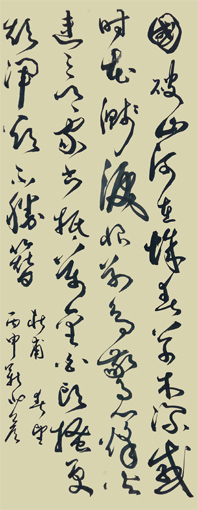 國破山河在城春草木深感
時花濺淚恨別鳥驚心烽火
連三月家書抵萬金白頭搔更
短渾欲不勝簪
杜甫 春望
丙申